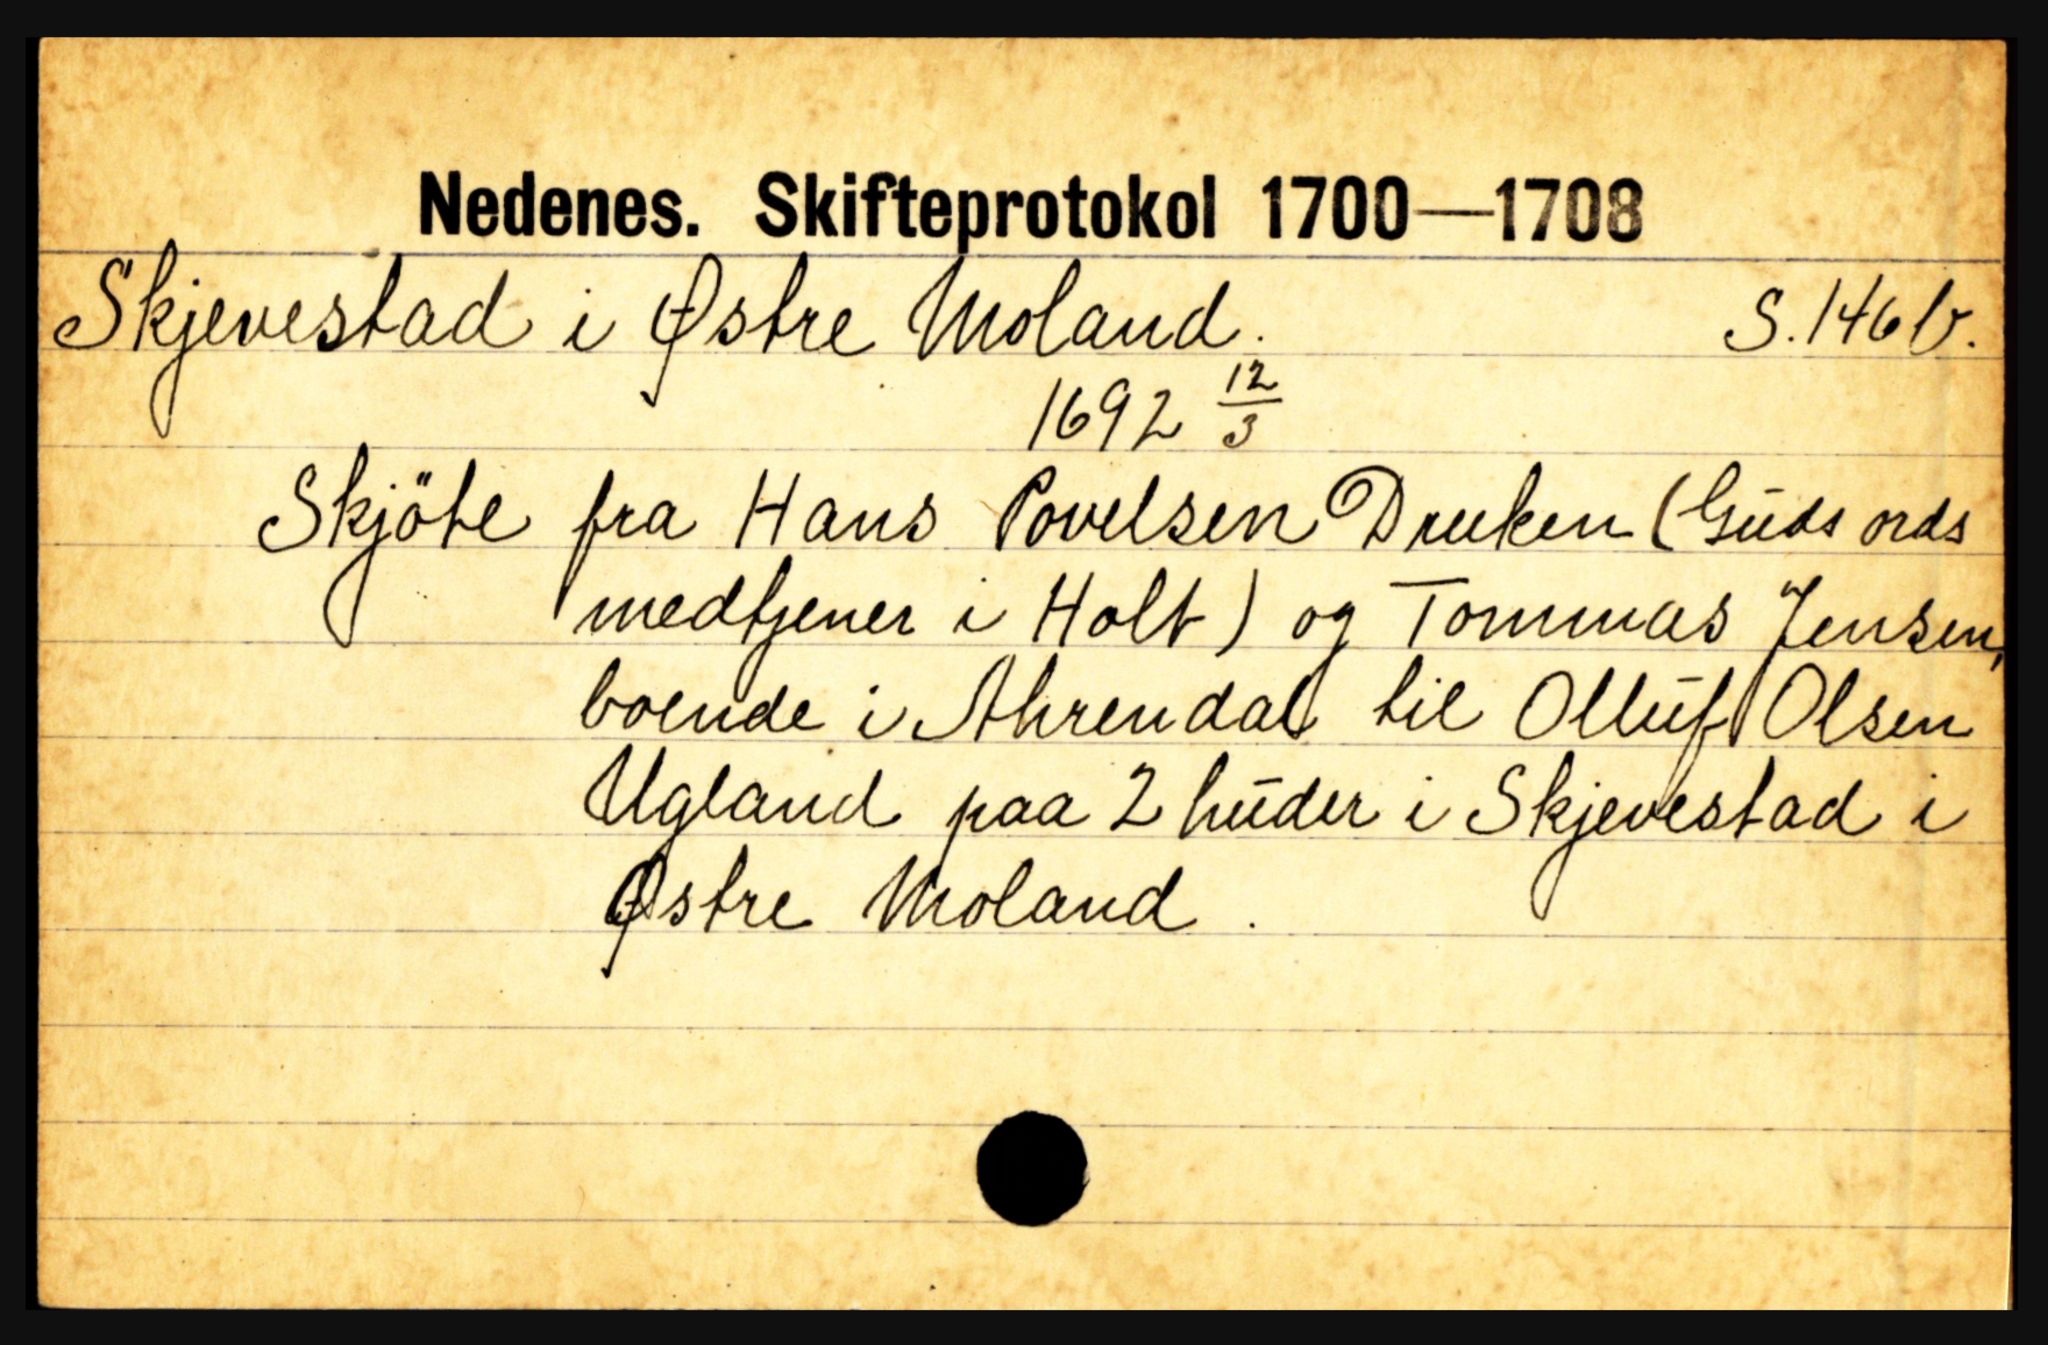 Nedenes. Skifteprotokol 1700—1708
Skjevestad i Østre Moland. S. 146 b.
1692 12/3
Skjöte fra Hans Povelsen Dreeken (Guds ords
medtjener i Holt) og Tommas Jensen,
boende i Ahrendal til Olluf Olsen
Ugland paa 2 huder i Skjevestad i
Østre Moland.